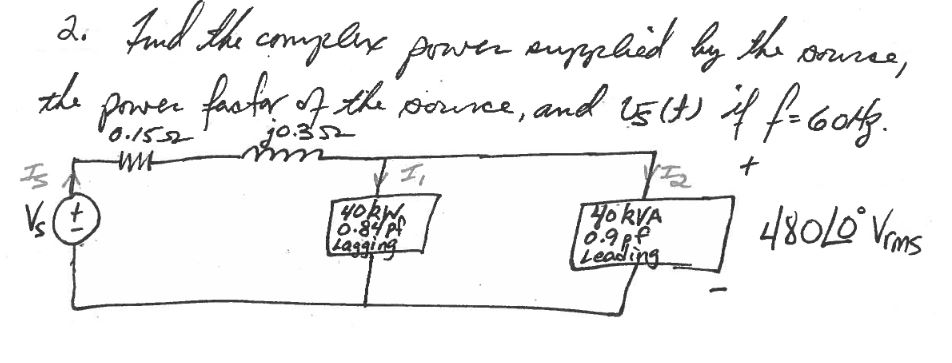 2. Find the complex power supplied by the source,
the power factor of the source, and vs(t) if f=60Hz.
0.15Ω j0.3Ω
Is I1 I2 +
Vs + -
40 kW
0.84 pf
Lagging
40 kVA
0.9 pf
Leading
480∠0° Vrms
-